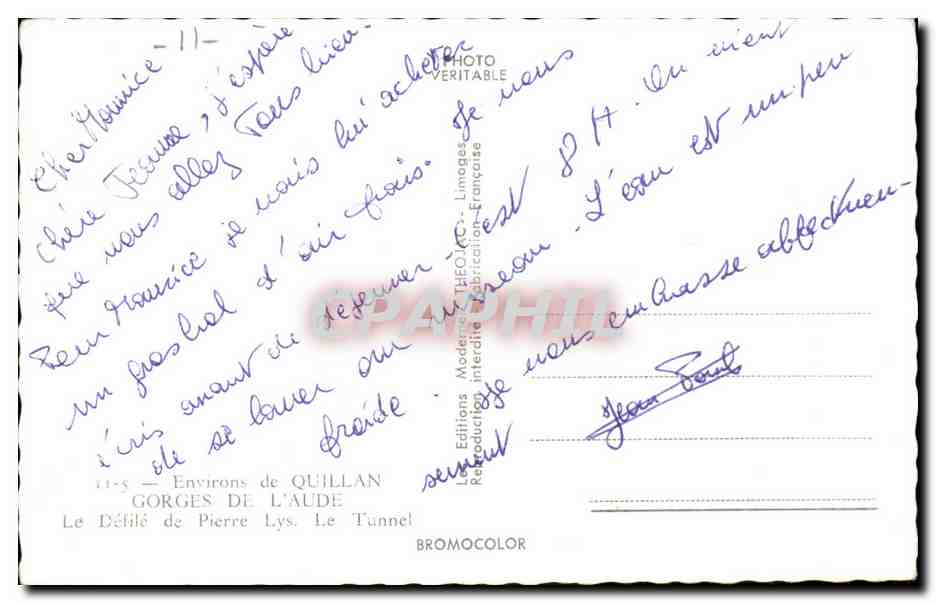 - 11 -
Cher Maurice
Chère Jeanne, j'espère
que vous allez Tous bien.
Maurice je vais lui acheter
un bol d'air frais. Je vous
écris avant de déjeuner c'est 8 H. On vient
de se laver au ruisseau. L'eau est un peu
froide. Je vous embrasse affectueu-
sement
Jean Paul
PHOTO
VERITABLE
Les Editions Modernes "THEOJAC" - Limoges
Reproduction interdite - Fabrication Française
CPAPHIL
11-5 — Environs de QUILLAN
GORGES DE L'AUDE
Le Défilé de Pierre Lys. Le Tunnel
BROMOCOLOR